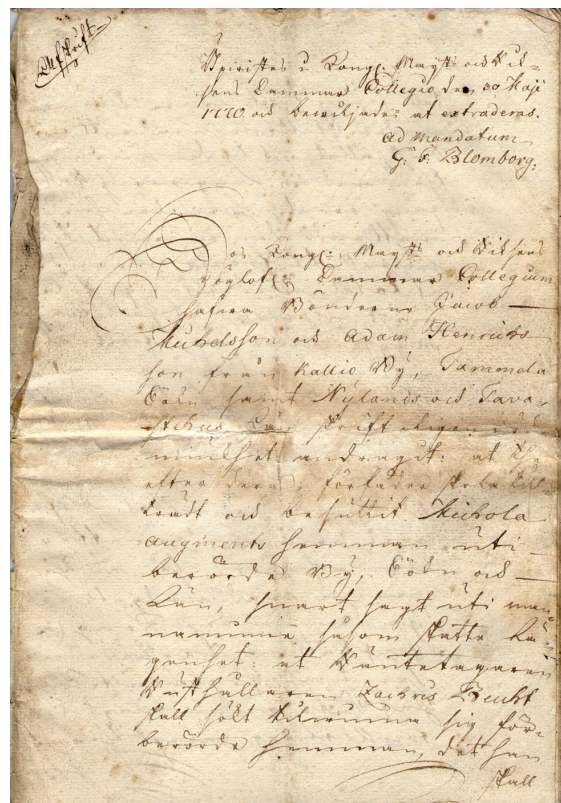 Afskrift.
Upvistes i Kongl: Mayts och Rik-
sens Cammar Collegio den 30 Maji
1770. och beviljades at extraderas.
ad mandatum
G. E. Blomborg.
Hos Kongl: Mayts och Riksens
Höglofl: Cammar Collegium
hafwa Bönderne Jacob
Michelsson och Adam Henrichs-
son från Kallio By, Tammela
Sökn samt Nylands och Tava-
stehus Län skrifteligen i öd-
miukhet andragit: at the
efter deras förfäder skola till-
trädt och besuttit Michola
augments hemman uti
berörde By, Sökn och
Län, snart sagt uti man-
naminne såsom skatte lä-
genhet: at Räntetagaren
Rusthållaren Zachris
skall sökt tilwinna sig för-
berörde hemman, det han
skall